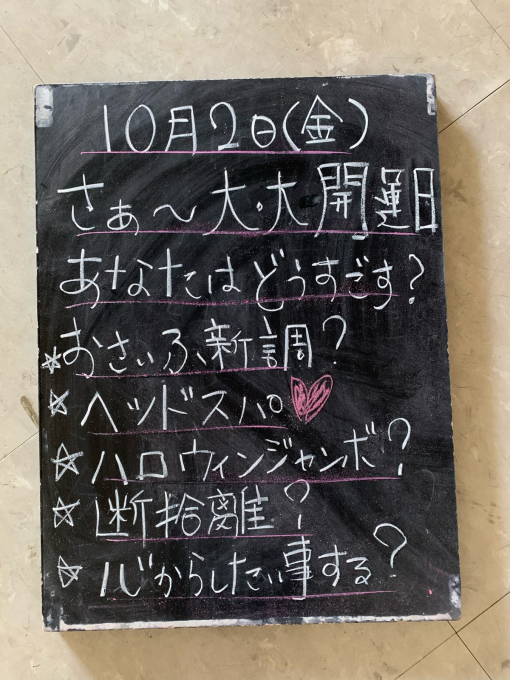 10月2日(金)
さぁ〜大・大開運日
あなたはどうすごす?
☆おさいふ新調?
☆ヘッドスパ♡
☆ハロウィンジャンボ?
☆断捨離?
☆心からしたい事する?